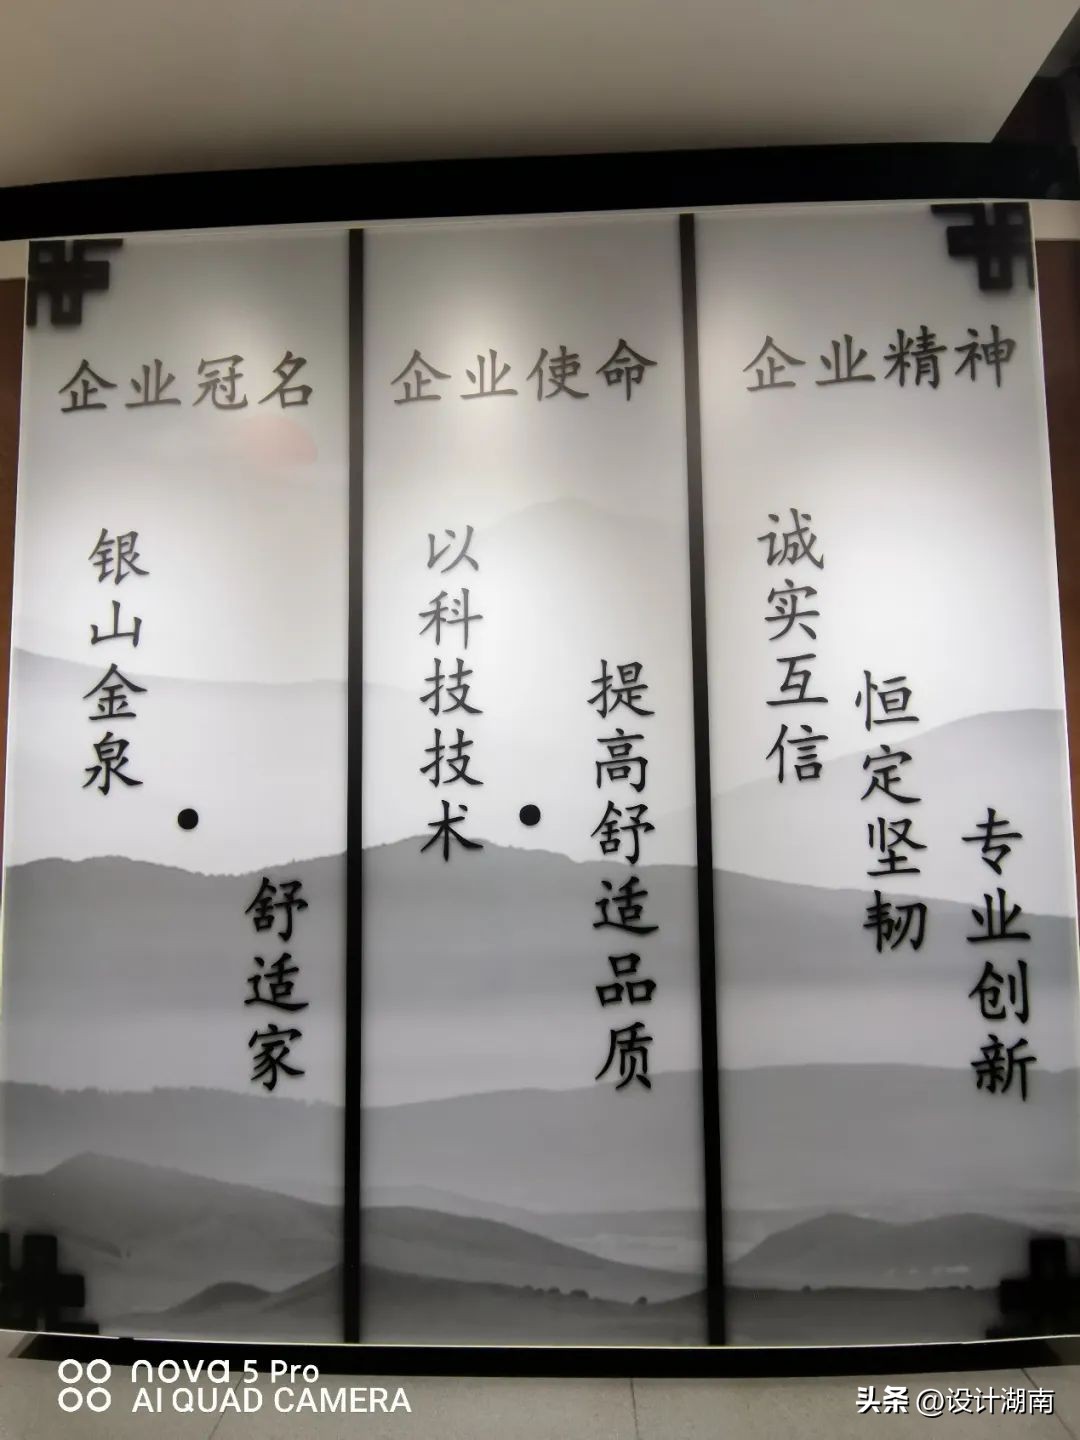 企业冠名
银山金泉
•
舒适家
企业使命
以科技技术
•
提高舒适品质
企业精神
诚实互信
恒定坚韧
专业创新
nova 5 Pro
AI QUAD CAMERA
头条 @设计湖南